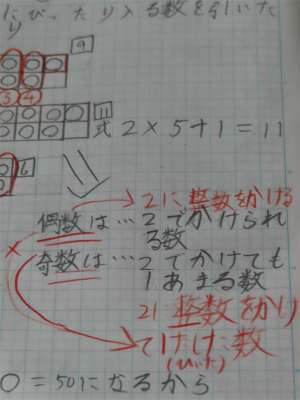 にぴったり入る数を引いた
り
9
3 4
11
式 2×5+1=11
6
2に整数をかける
偶数は…2でかけられ
る数
×
奇数は…2でかけても
1あまる数
2に整数をかり
てけけた数
(ひいた)
0=50になるから